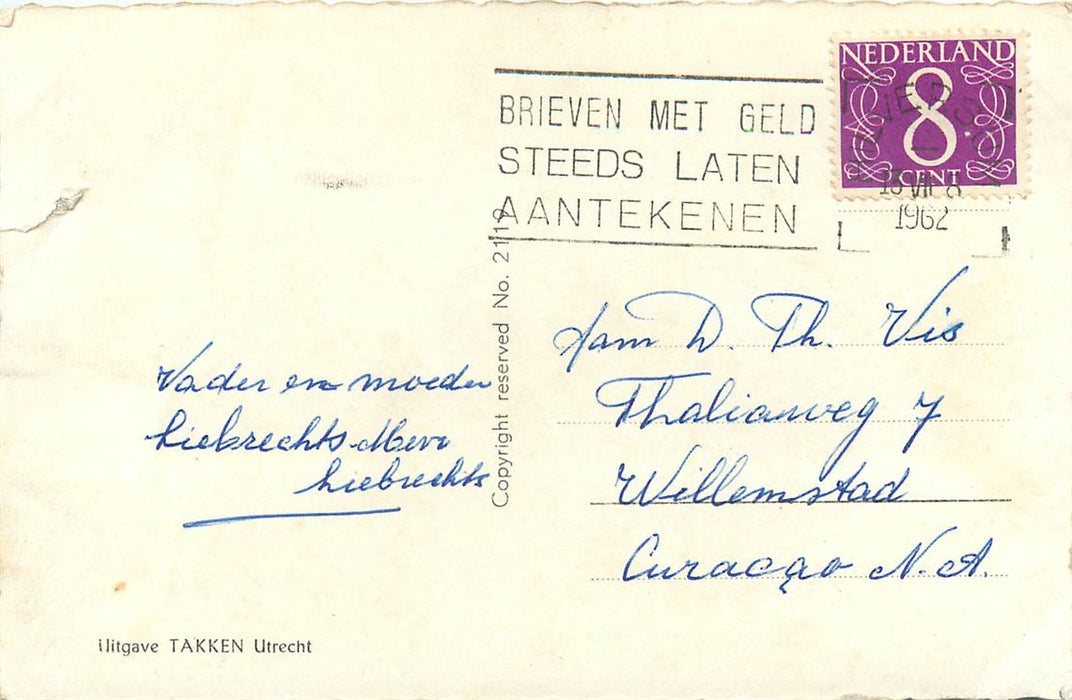 NEDERLAND
8
CENT
HILVERSUM
1962
BRIEVEN MET GELD
STEEDS LATEN
AANTEKENEN
Copyright reserved No. 2119
Vader en moeder
Liebrechts-Mevr
Liebrechts
Fam D. Th. Vis
Thaliaweg 7
Willemstad
Curaçao N.A.
Uitgave TAKKEN Utrecht